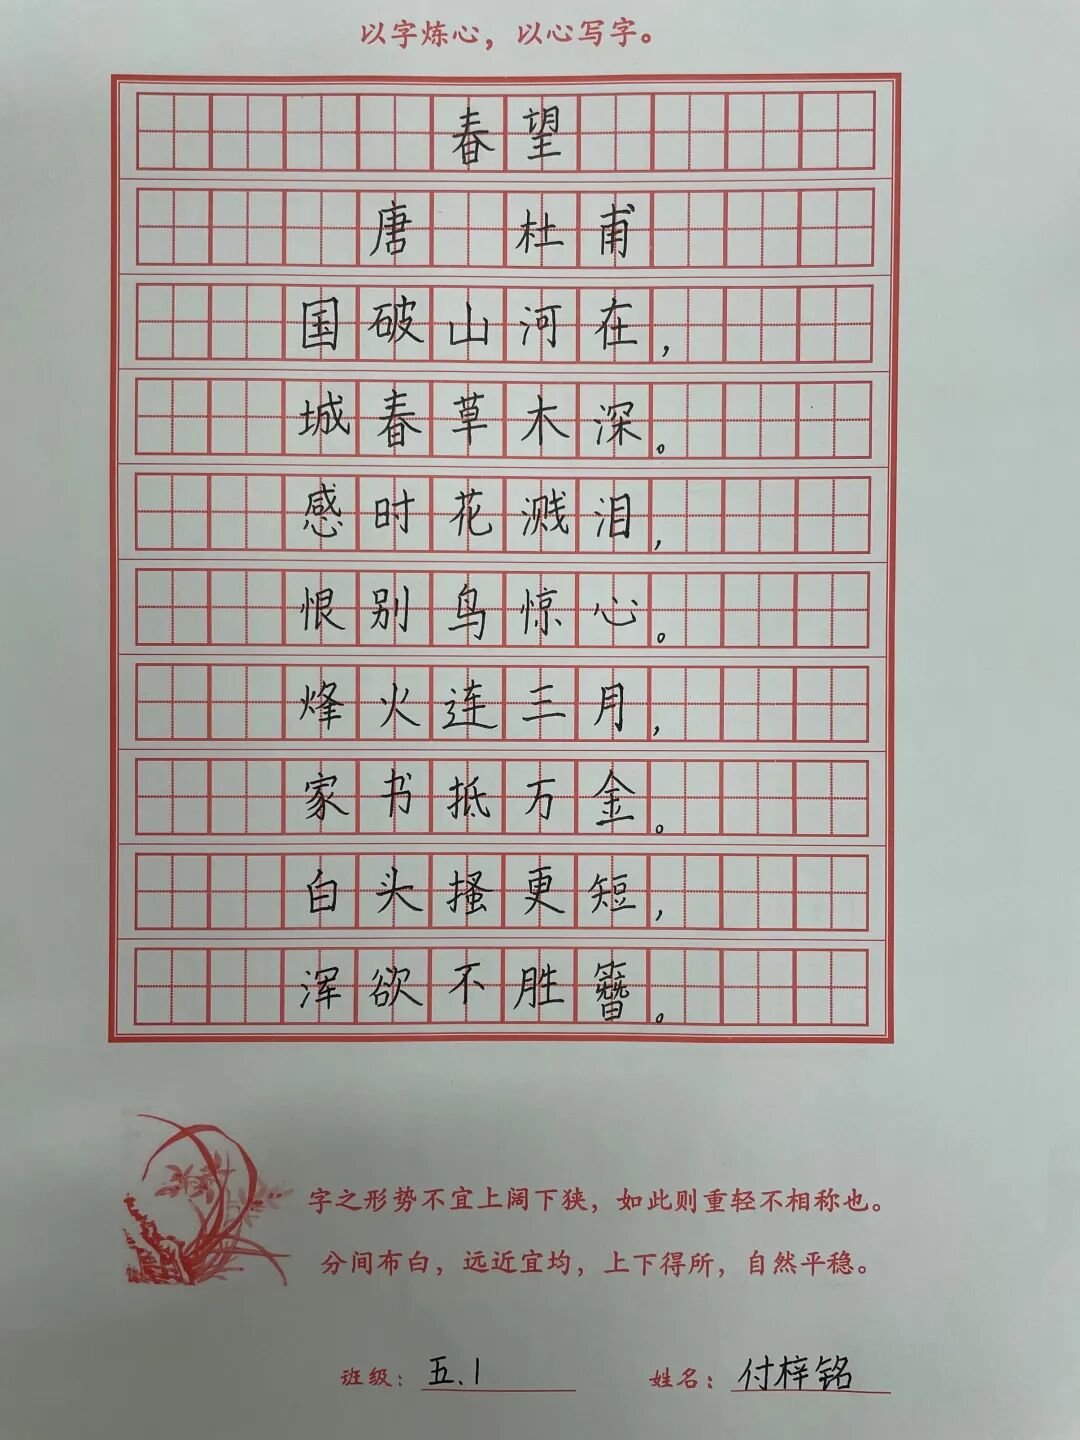 以字炼心，以心写字。
春望
唐 杜甫
国破山河在，
城春草木深。
感时花溅泪，
恨别鸟惊心。
烽火连三月，
家书抵万金。
白头搔更短，
浑欲不胜簪。
字之形势不宜上阔下狭，如此则重轻不相称也。
分间布白，远近宜均，上下得所，自然平稳。
班级：五.1 姓名：付梓铭